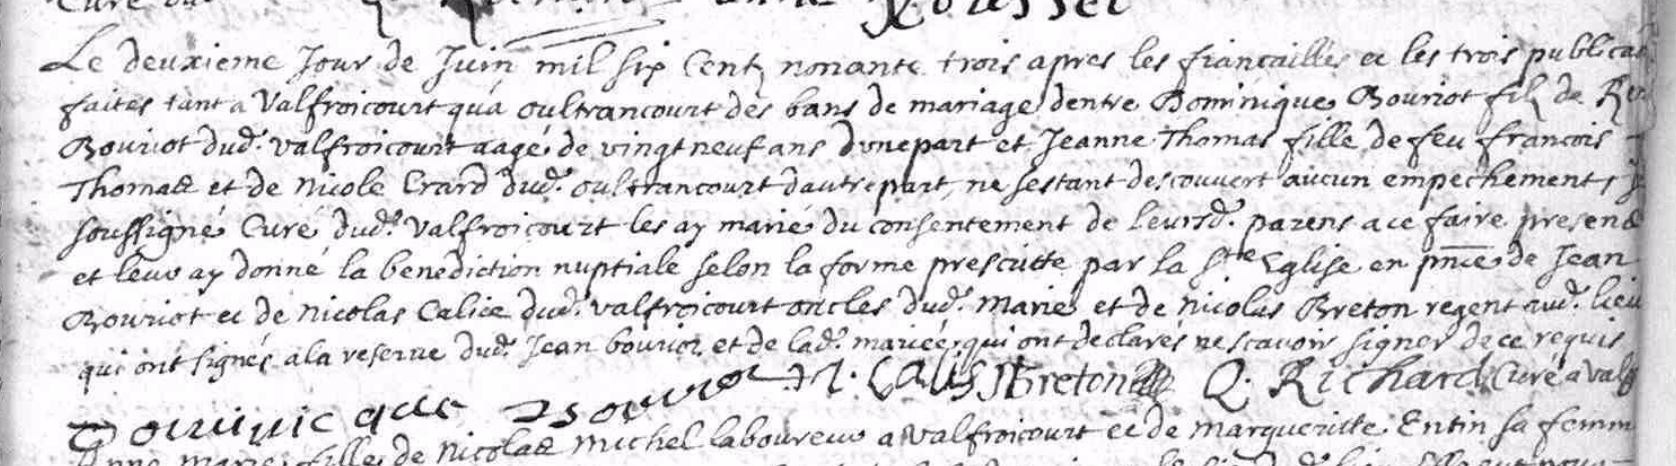 Rousset
Le deuxieme Jour de Juin mil six Centz nonante trois apres les fiancailles et les trois publica
faites tant a Valfroicourt qu'a oultrancourt des bans de mariage dentre Dominique Bouriot filz de
Bouriot dud. valfroicourt aagé de vingt neuf ans d'vne part et Jeanne Thomas fille de feu francois
Thomas et de Nicole Erard dud. oultrancourt dautre part, ne sestant descouvert aucun empechement,
soussigné Curé dud. valfroicourt les ay marié du consentement de leursd. parens a ce faire presens
et leur ay donné la benediction nuptiale selon la forme prescritte par la Ste Eglise en pnce de Jean
Bouriot et de Nicolas Calice dud. valfroicourt oncles dud. Marié et de Nicolas Breton regent aud. lieu
qui ont signés a la reserve dud. Jean bouriot et de lad. mariée qui ont declarés ne scavoir signer de ce requis
Dominicque Bouriot N. Calis N Breton Q. Richard Curé a valf
Anne marie fille de Nicolas Michel laboureur a Valfroicourt et de Margueritte Entin sa femm